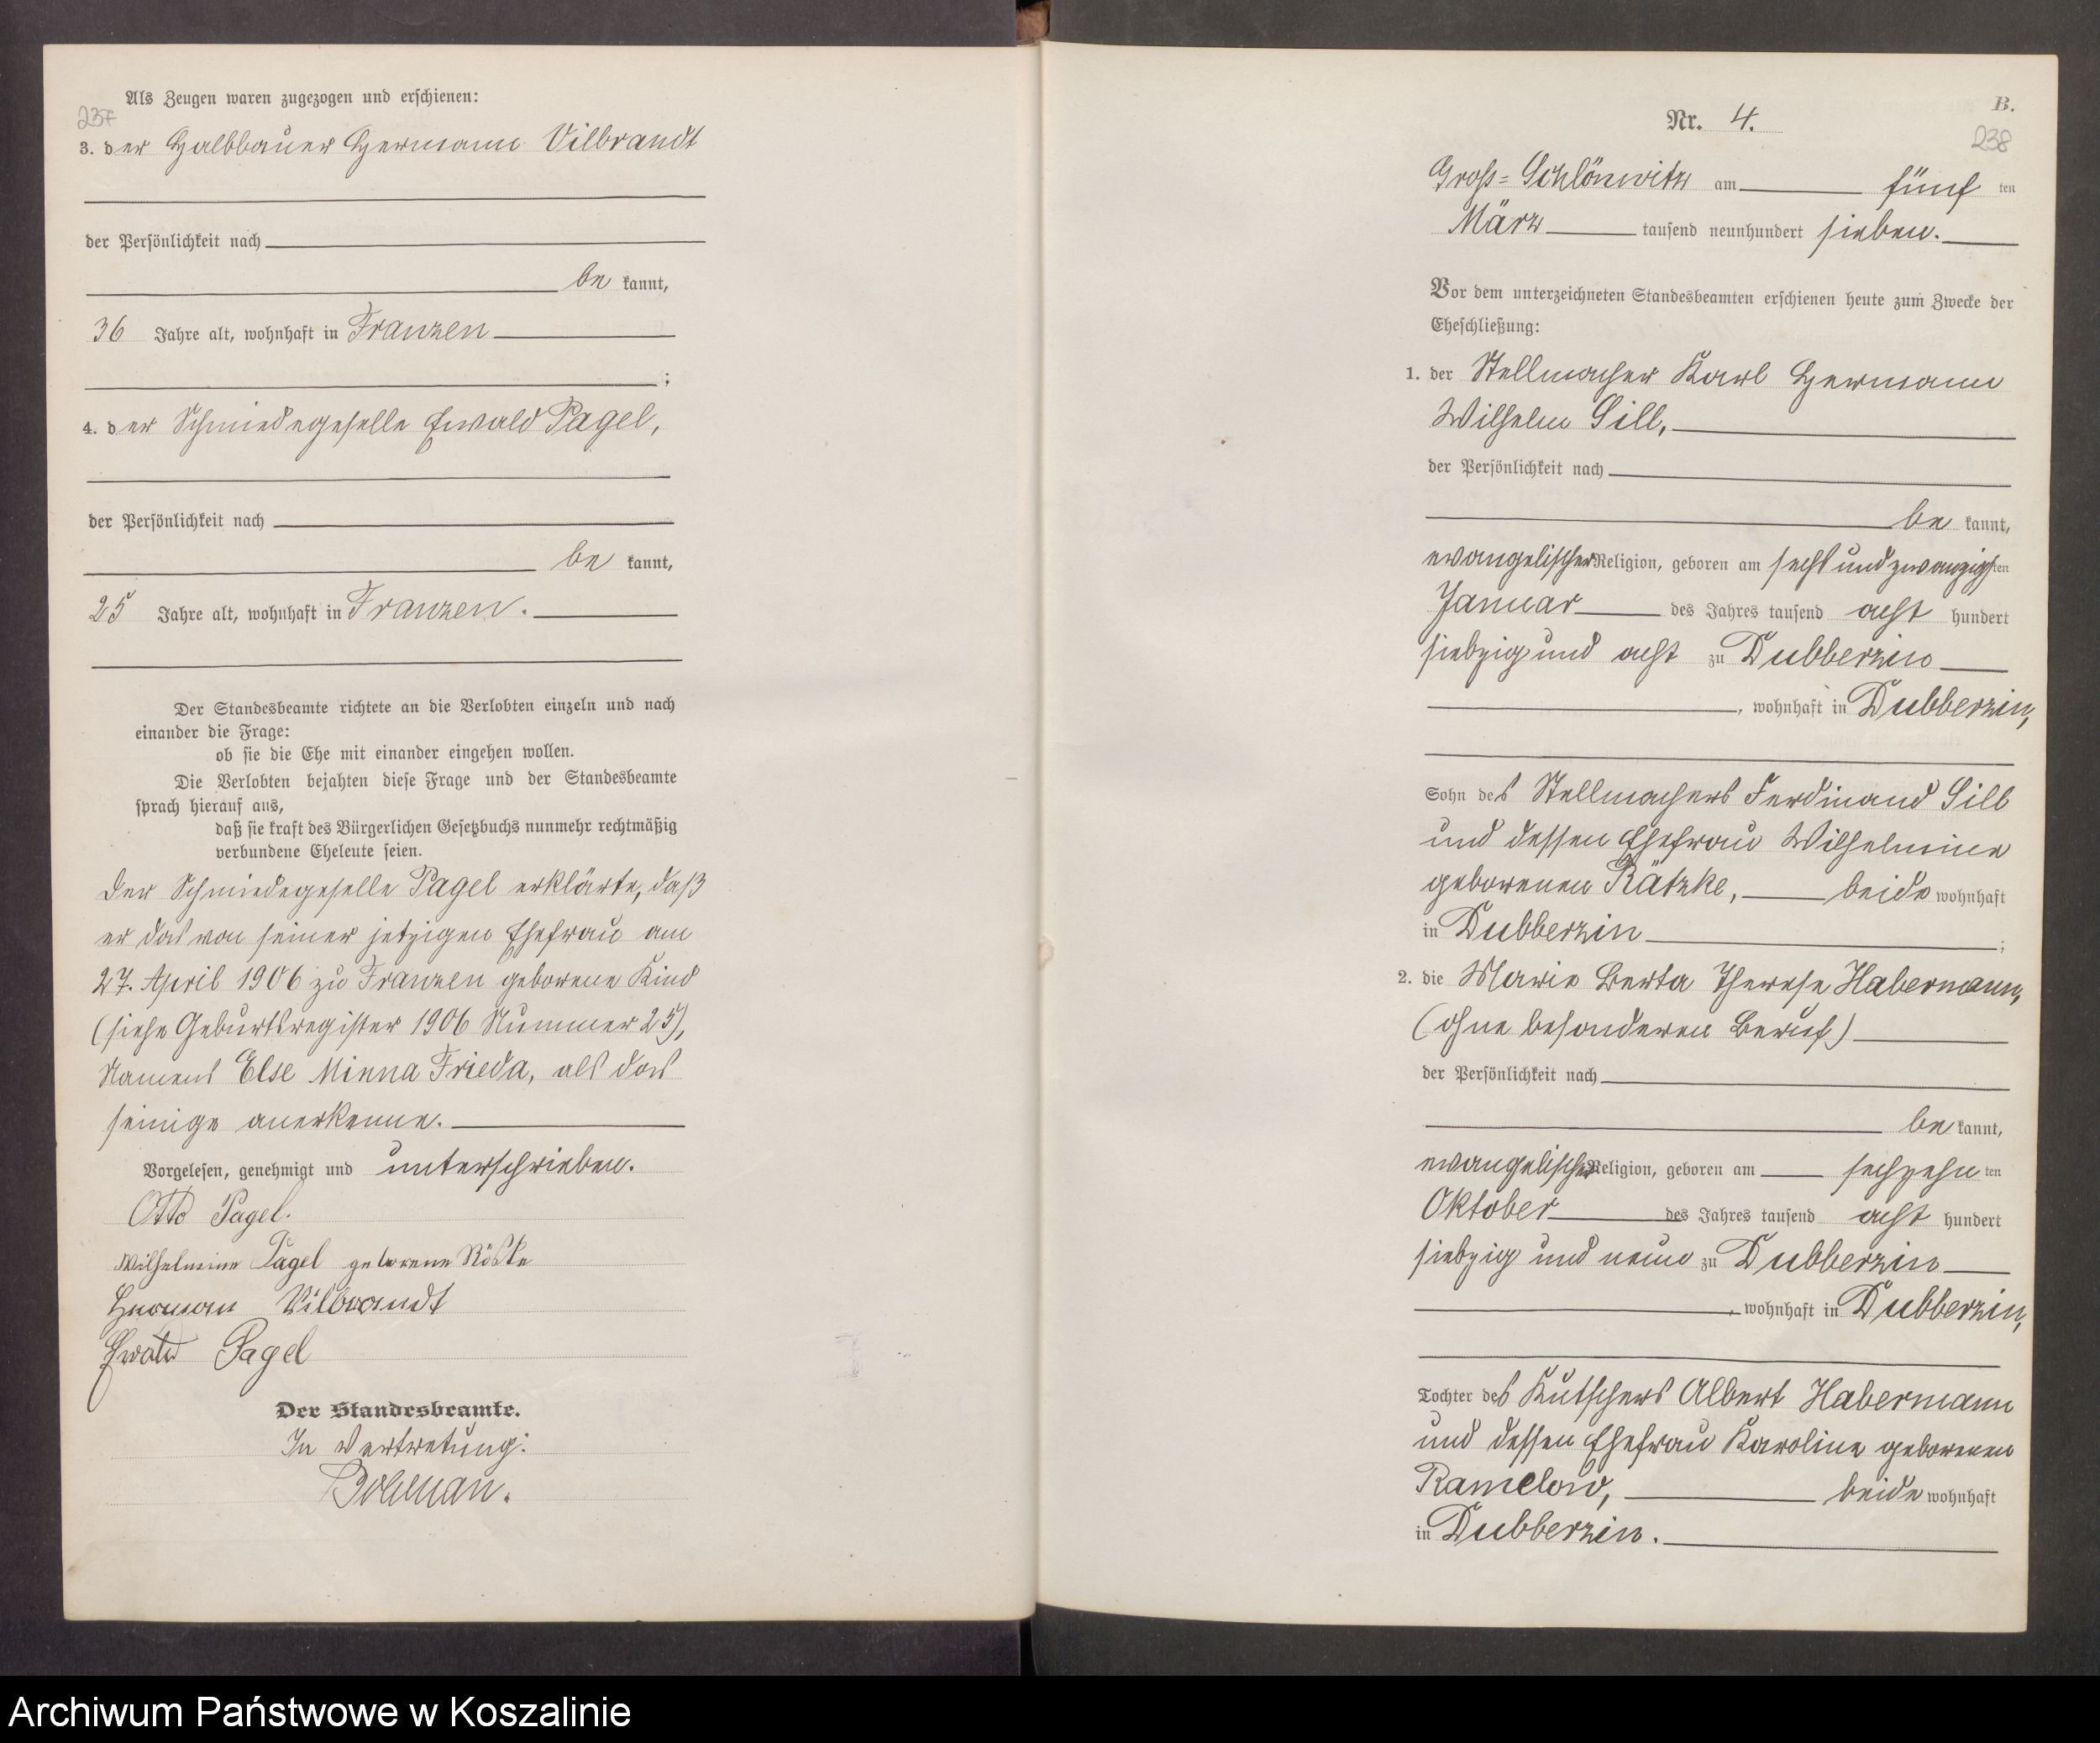 Als Zeugen waren zugezogen und erschienen:
237
3. der Halbbauer Hermann Vilbrandt
der Persönlichkeit nach
be kannt,
36 Jahre alt, wohnhaft in Franzen
;
4. der Schmiedegeselle Ewald Pagel,
der Persönlichkeit nach
be kannt,
25 Jahre alt, wohnhaft in Franzen.
Der Standesbeamte richtete an die Verlobten einzeln und nach
einander die Frage:
ob sie die Ehe mit einander eingehen wollen.
Die Verlobten bejahten diese Frage und der Standesbeamte
sprach hierauf aus,
daß sie kraft des Bürgerlichen Gesetzbuchs nunmehr rechtmäßig
verbundene Eheleute seien.
Der Schmiedegeselle Pagel erklärte, daß
er das von seiner jetzigen Ehefrau am
27. April 1906 zu Franzen geborene Kind
(siehe Geburtsregister 1906 Nummer 25),
Namens Else Minna Frieda, als das
seinige anerkenne.
Vorgelesen, genehmigt und unterschrieben.
Otto Pagel.
Wilhelmine Pagel geborene Röske
Herman Vilbrandt
Ewald Pagel
Der Standesbeamte.
In Vertretung:
B.
Nr. 4.
238
Groß=Schlönwitz am fünf ten
März tausend neunhundert sieben.
Vor dem unterzeichneten Standesbeamten erschienen heute zum Zwecke der
Eheschließung:
1. der Stellmacher Karl Hermann
Wilhelm Sill,
der Persönlichkeit nach
be kannt,
evangelischer Religion, geboren am sechs und zwanzigsten
Januar des Jahres tausend acht hundert
siebzig und acht zu Dubberzin
, wohnhaft in Dubberzin,
Sohn des Stellmachers Ferdinand Sill
und dessen Ehefrau Wilhelmine
geborenen Rätzke, beide wohnhaft
in Dubberzin ;
2. die Marie Berta Therese Habermann,
(ohne besonderen Beruf)
der Persönlichkeit nach
be kannt,
evangelischer Religion, geboren am sechzehn ten
Oktober des Jahres tausend acht hundert
siebzig und neun zu Dubberzin
, wohnhaft in Dubberzin,
Tochter des Kutschers Albert Habermann
und dessen Ehefrau Karoline geborenen
Ramelow, beide wohnhaft
in Dubberzin.
Archiwum Państwowe w Koszalinie